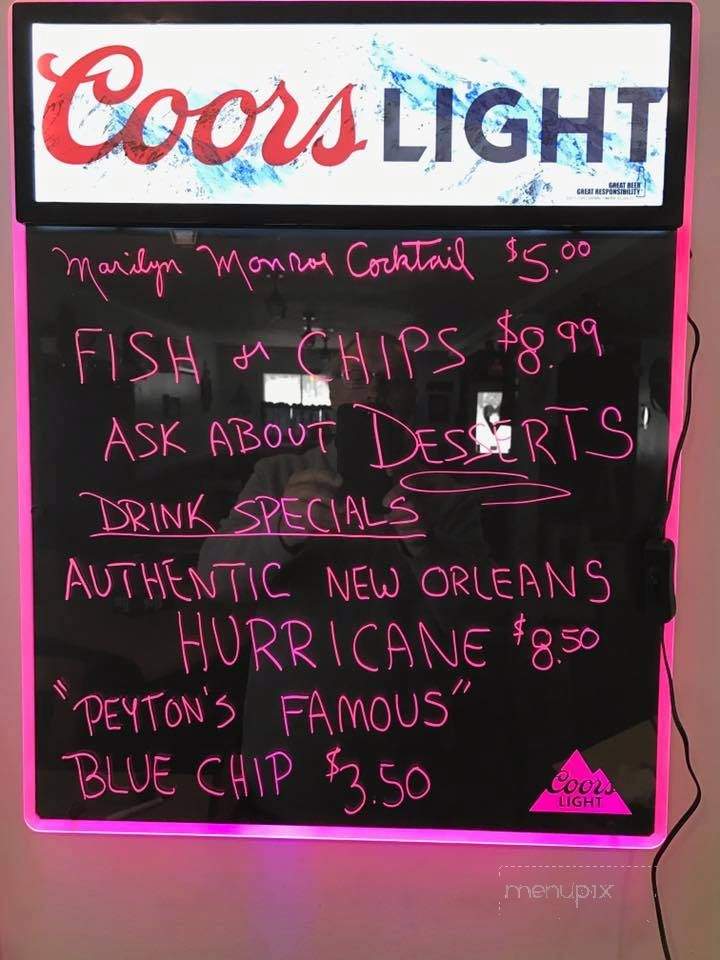 Coors LIGHT
GREAT BEER
GREAT RESPONSIBILITY
Marilyn Monroe Cocktail $5.00
FISH & CHIPS $8.99
ASK ABOUT DESSERTS
DRINK SPECIALS
AUTHENTIC NEW ORLEANS
HURRICANE $8.50
"PEYTON'S FAMOUS"
BLUE CHIP $3.50
Coors
LIGHT
menupix